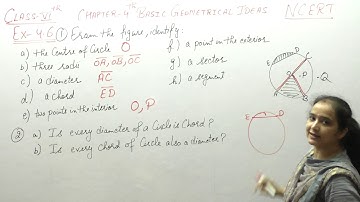 CLASS-VIth CHAPTER-4th BASIC GEOMETRICAL IDEAS NCERT
Ex-4.6 ① Exam the figure, identify:
a) the Centre of Circle O
b) three radii OA, OB, OC
c) a diameter AC
d) a chord ED
e) two points in the interior O, P
f) a point on the exterior
g) a sector
h) a segment
② a) Is every diameter of a Circle is Chord?
b) Is every chord of Circle also a diameter?
D
E
C
O
P
B
A
Q
E
D